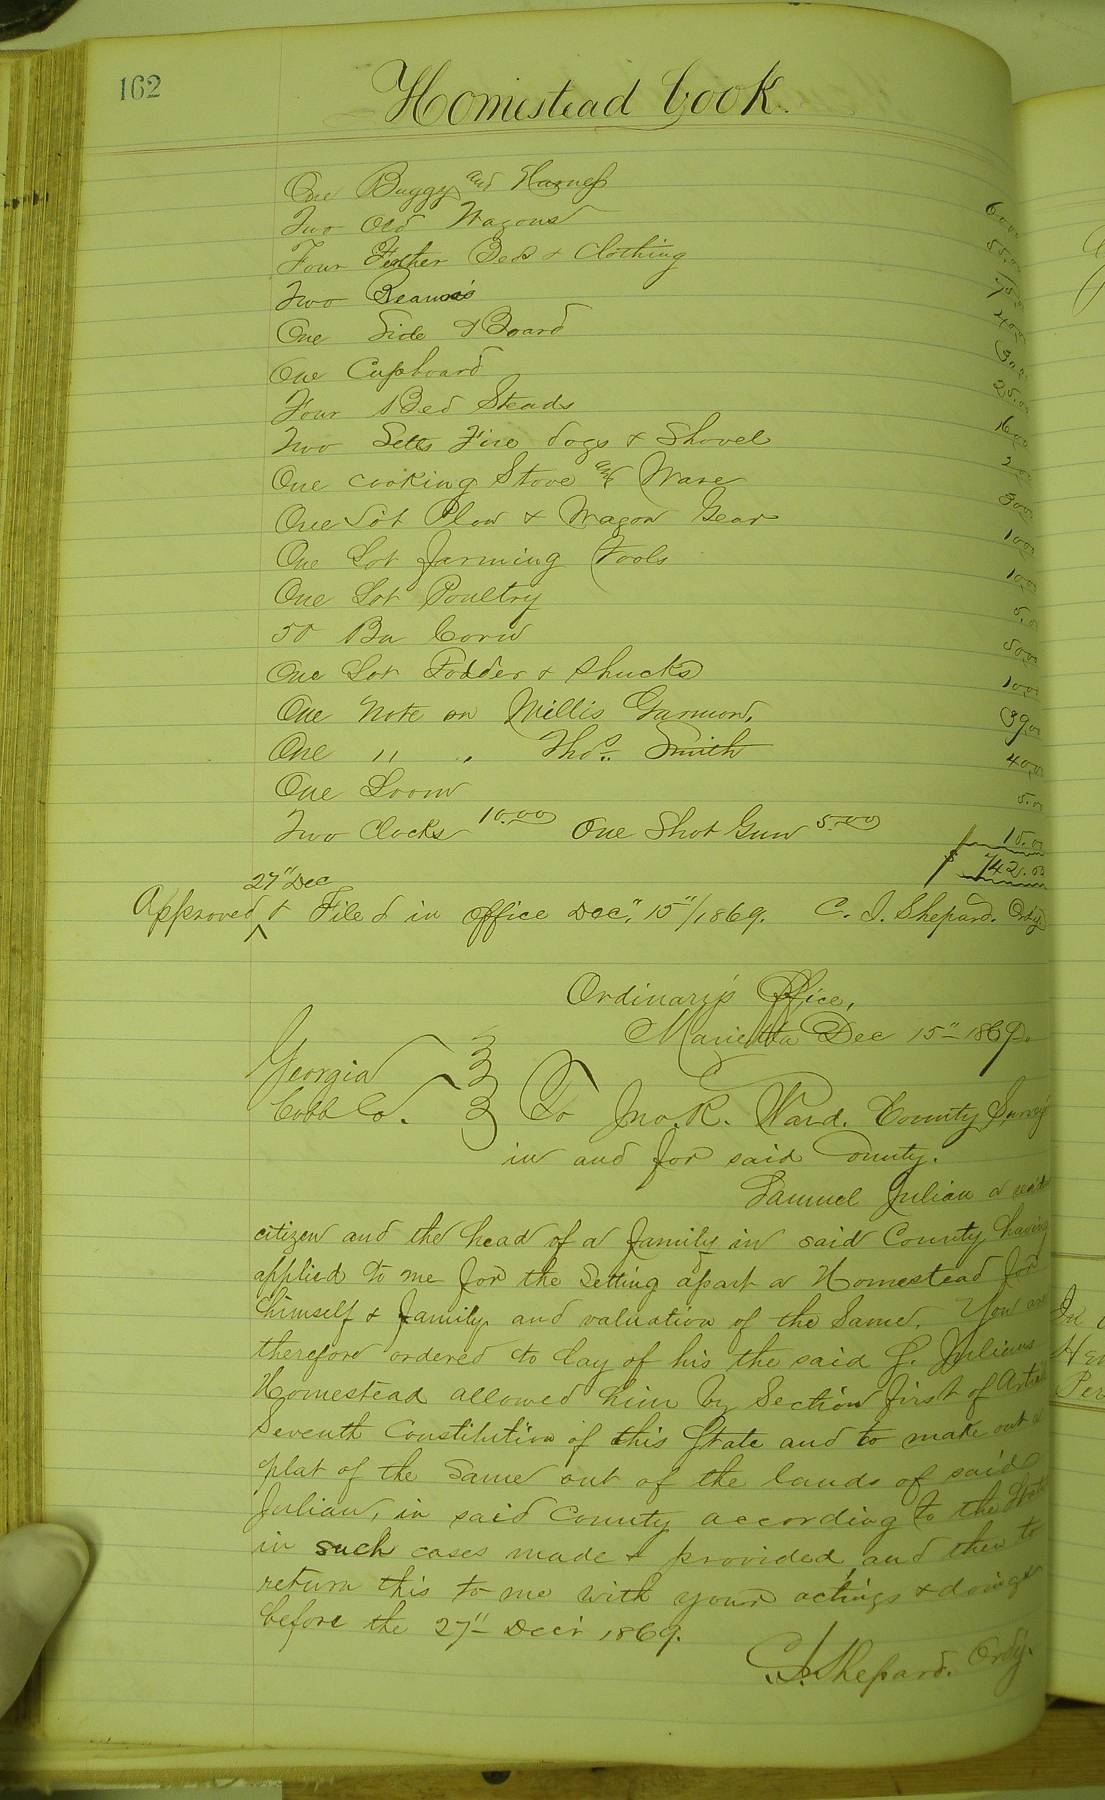 162
Homestead Book.
One Buggy and Harness
Two Old Wagons 60.00
Four Feather Beds & Clothing 55.00
Two Beaureaus 75.00
One Side Board 40.00
One Cupboard
Four Bed Steads 25.00
Two Setts Fire dogs & Shovel 16.00
One cooking Stove and Ware 2.00
One Lot Plow & Wagon Gear 30.00
One Lot farming Tools 10.00
One Lot Poultry 10.00
50 Bu Corn 5.00
One Lot Fodder & Shucks 50.00
One Note on Willis Garmon, 10.00
One " " Thos. Smith 39.00
One Loom 40.00
Two Clocks 10.00 One Shot Gun 5.00 5.00
15.00
$ 742.00
27" Dec
Approved & Filed in office Dec" 15"/1869. C. J. Shepard. Ordy
Ordinary's Office,
Marietta Dec 15" 1869.
Georgia
Cobb Co. To Jno. R. Ward. County Survey
in and for said County.
Samuel Julian a
citizen and the head of a family in said County having
applied to me for the Setting apart a Homestead for
himself & family and valuation of the Same. You are
therefore ordered to lay of his the said S. Julians
Homestead allowed him by Section first of Article
Seventh Constitution of this State and to make out a
plat of the Same out of the lands of said
Julian, in said County according to the
in such cases made & provided and then to
return this to me with your actings & doings
before the 27" Decr 1869.
C. J. Shepard. Ordy.